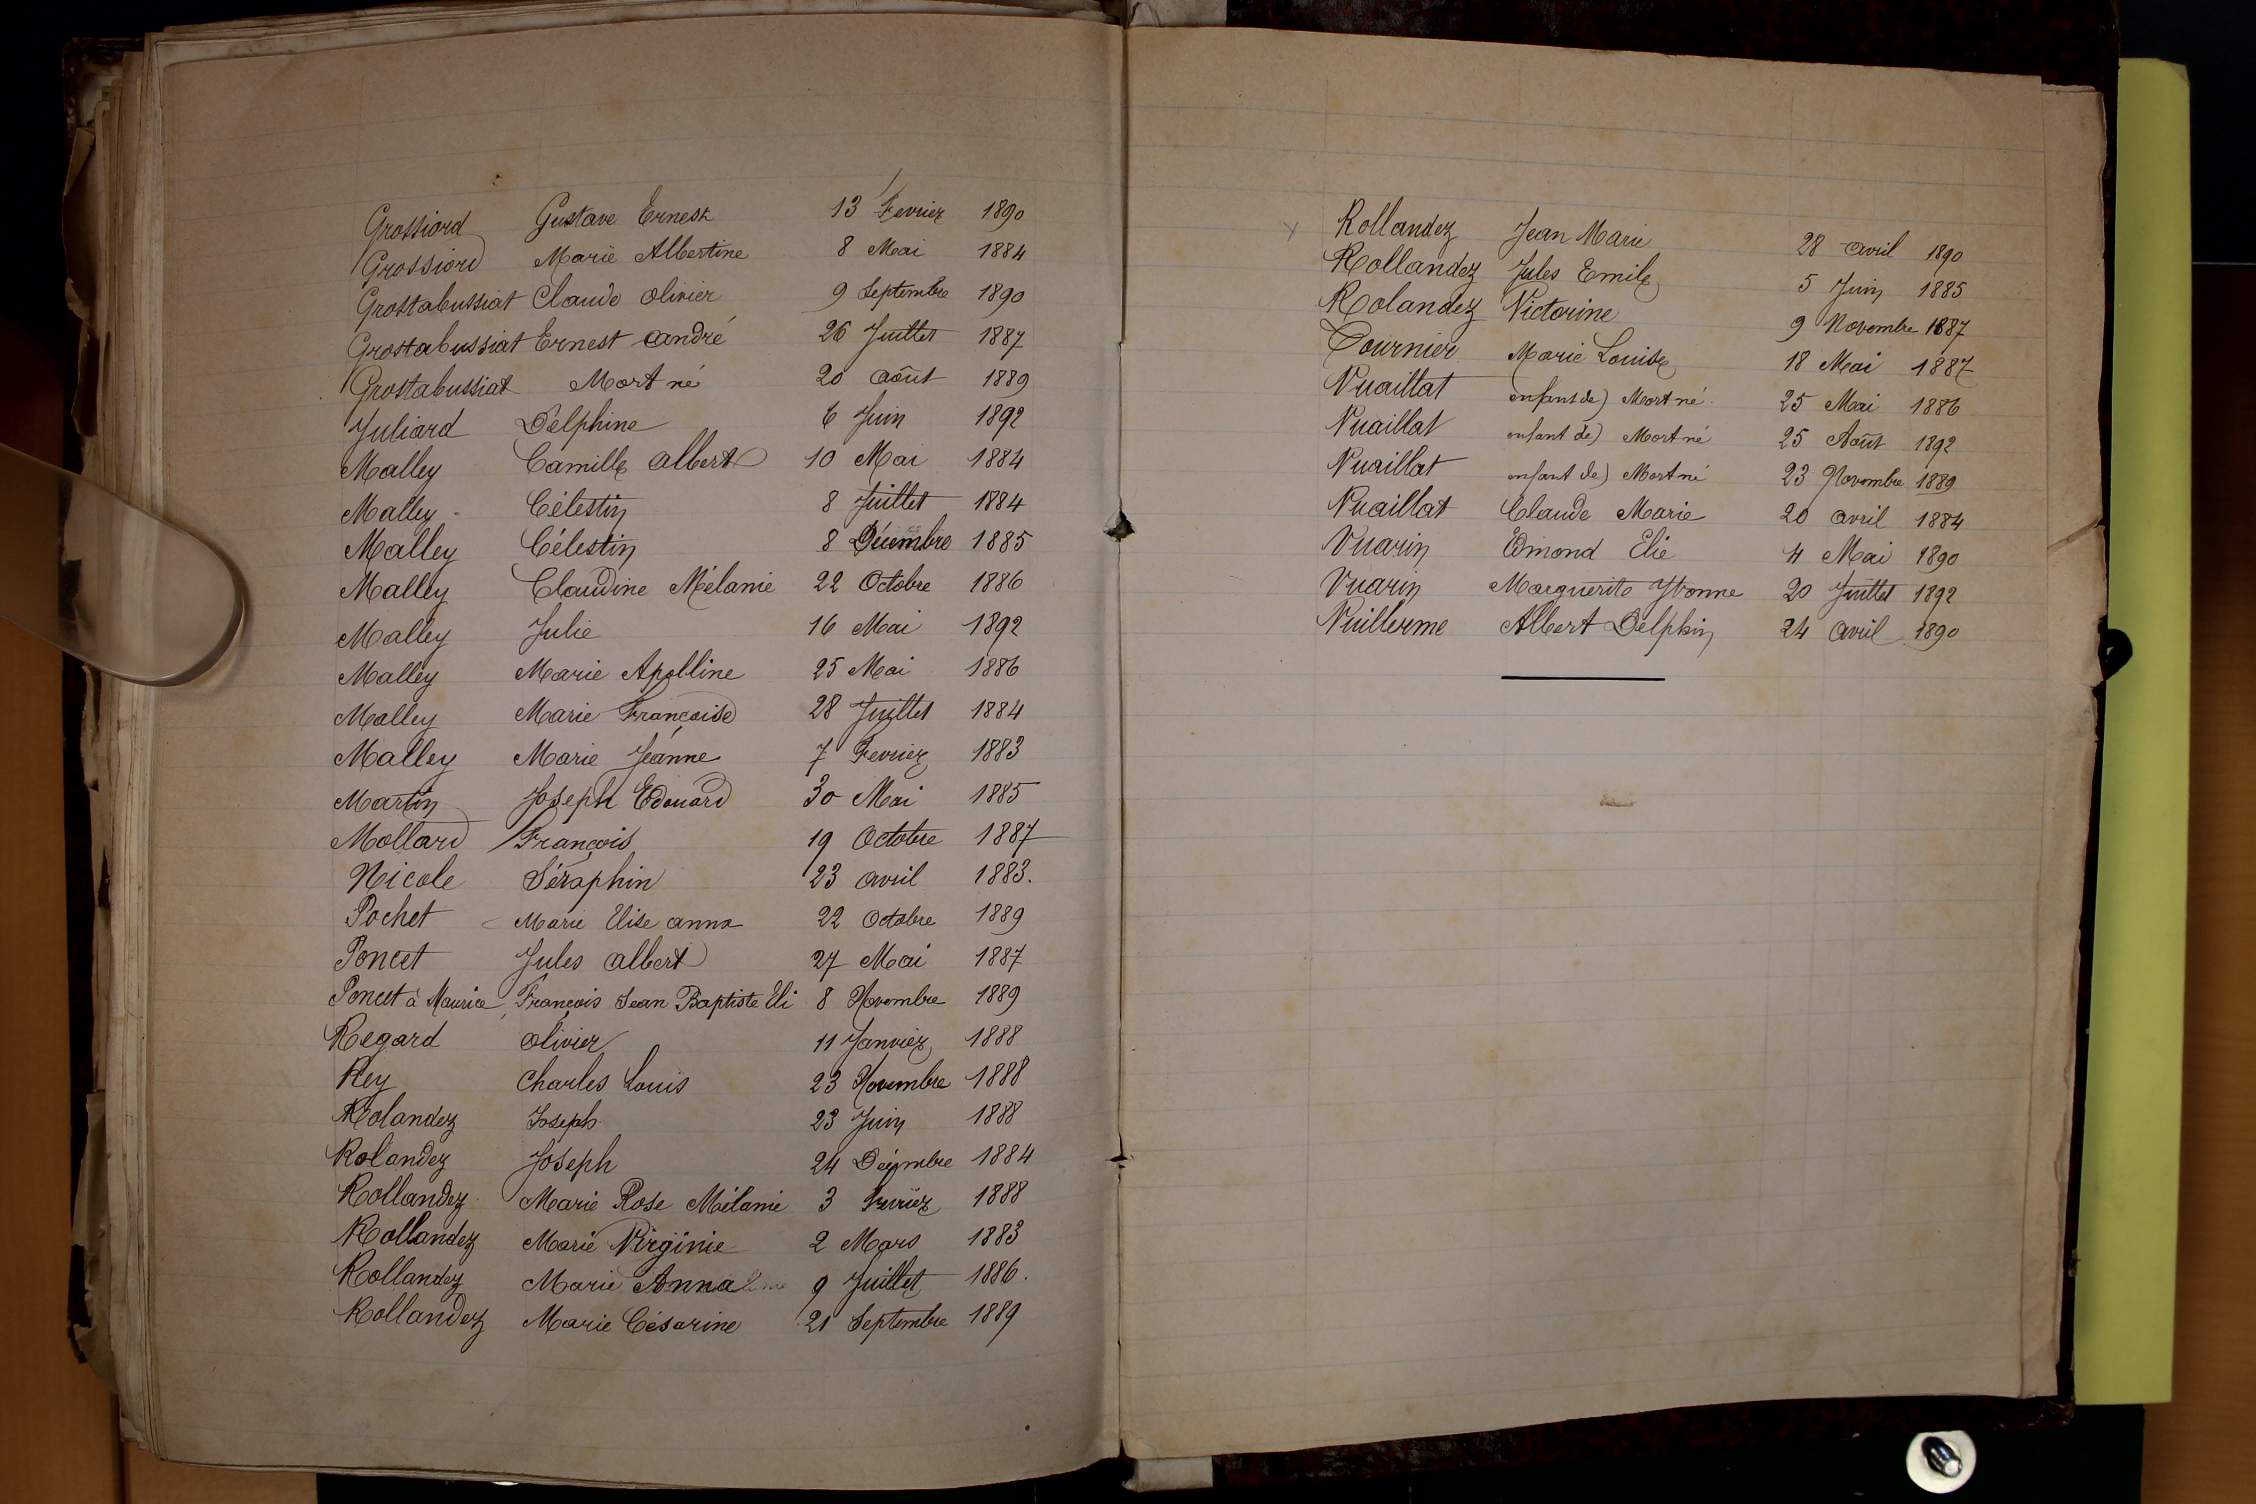 Grossiord Gustave Ernest 13 Fevrier 1890
Grossiord Marie Albertine 8 Mai 1884
Grostabussiat Claude Olivier 9 Septembre 1890
Grostabussiat Ernest André 26 Juillet 1887
Grostabussiat Mort né 20 Août 1889
Juliard Delphine 6 Juin 1892
Malley Camille Albert 10 Mai 1884
Malley Célestin 8 Juillet 1884
Malley Célestin 8 Décembre 1885
Malley Claudine Mélanie 22 Octobre 1886
Malley Julie 16 Mai 1892
Malley Marie Apolline 25 Mai 1886
Malley Marie Françoise 28 Juillet 1884
Malley Marie Jeanne 7 Fevrier 1883
Martin Joseph Edouard 30 Mai 1885
Mollard François 19 Octobre 1887
Nicole Séraphin 23 Avril 1883.
Pochet Marie Elise Anna 22 Octobre 1889
Poncet Jules Albert 27 Mai 1887
Poncet à Maurice, François Jean Baptiste Eli 8 Novembre 1889
Regard Olivier 11 Janvier 1888
Rey Charles Louis 23 Novembre 1888
Rolandez Joseph 23 Juin 1888
Rolandez Joseph 24 Décembre 1884
Rollandez Marie Rose Mélanie 3 Fevrier 1888
Rollandez Marie Virginie 2 Mars 1883
Rollandez Marie Anna 9 Juillet 1886.
Rollandez Marie Césarine 21 Septembre 1889
Rollandez Jean Marie 28 Avril 1890
Rollandez Jules Emile 5 Juin 1885
Rolandez Victorine 9 Novembre 1887
Tournier Marie Louise 18 Mai 1887
Vuaillat enfant de) Mort né 25 Mai 1886
Vuaillat enfant de) Mort né 25 Août 1892
Vuaillat enfant de) Mort né 23 Novembre 1889
Vuaillat Claude Marie 20 Avril 1884
Vuarin Edmond Elie 4 Mai 1890
Vuarin Marguerite Yvonne 20 Juillet 1892
Vuillerme Albert Delphin 24 Avril 1890